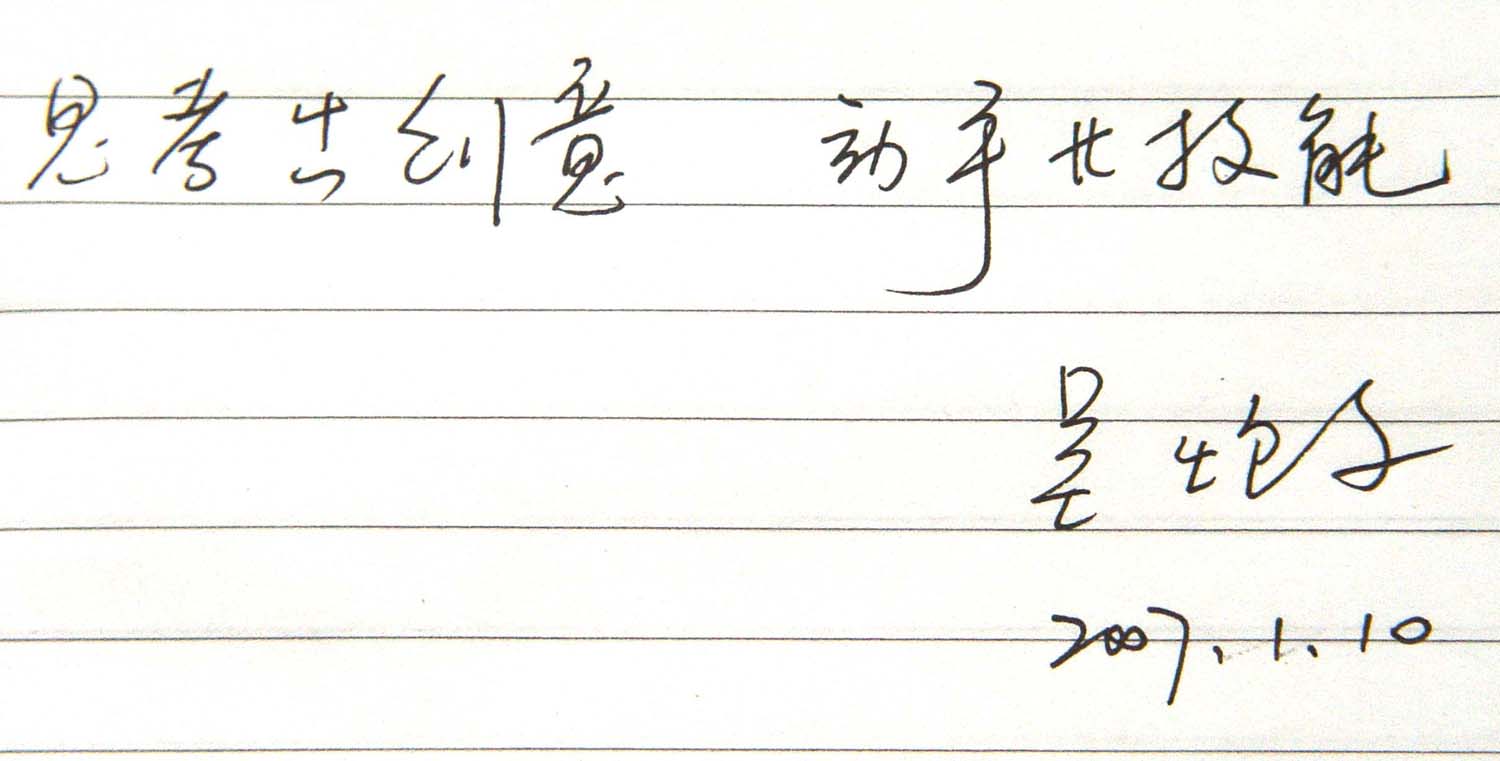 思考出创意 动手出技能
吴
2007.1.10